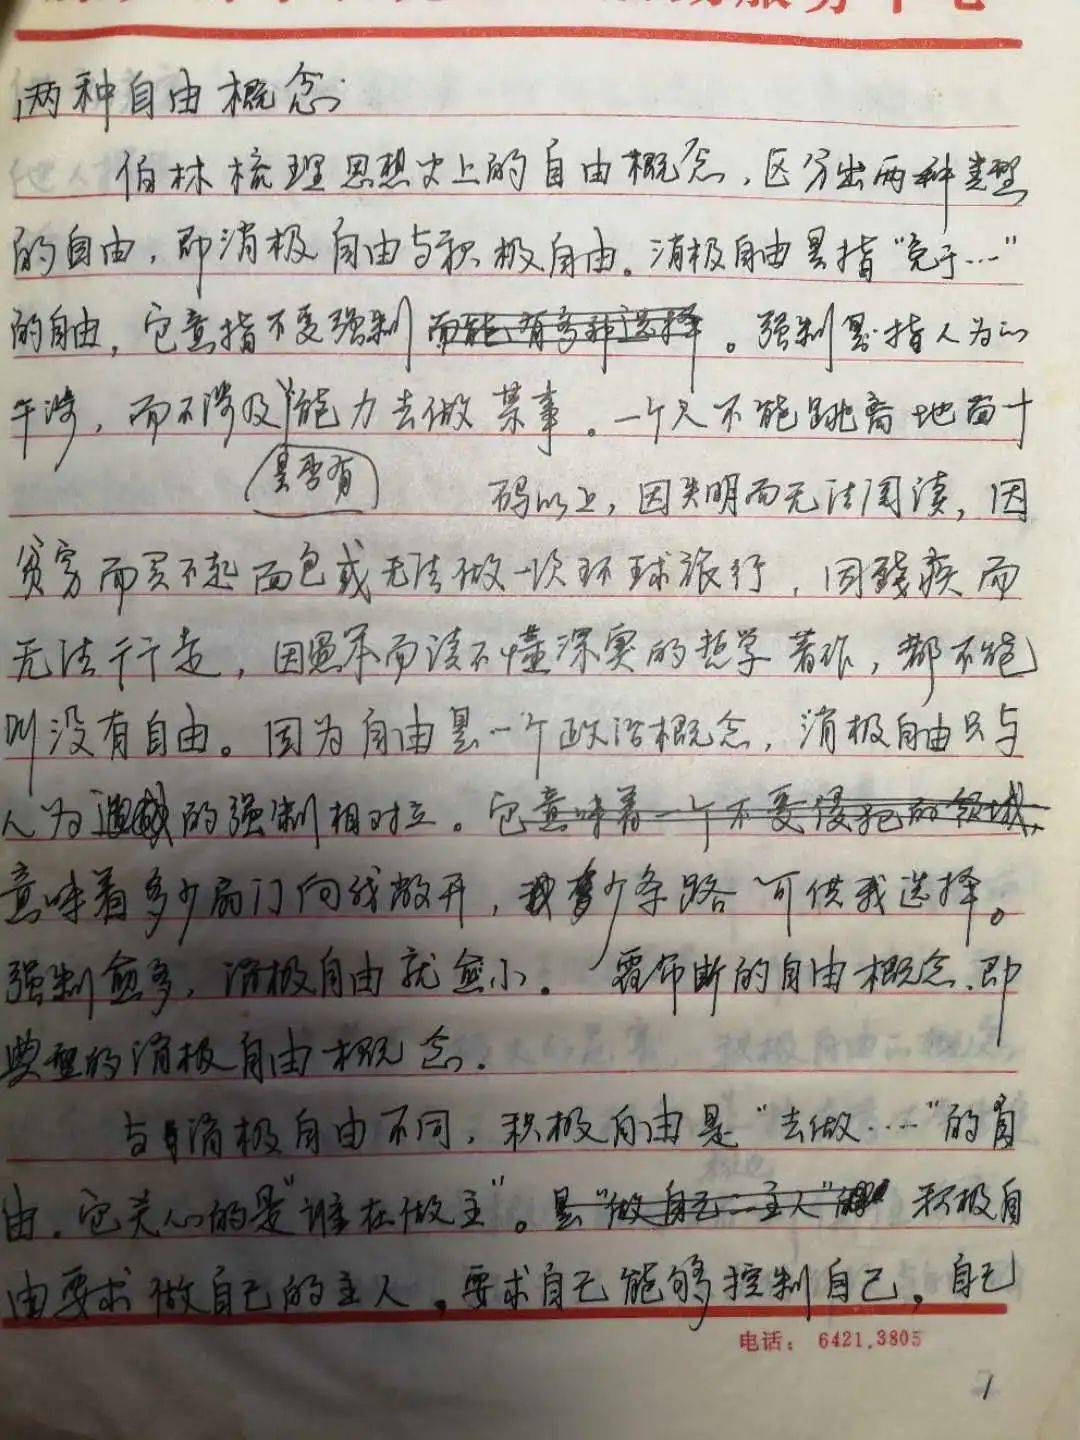 服务中心
两种自由概念
伯林梳理思想史上的自由概念，区分出两种类型
的自由，即消极自由与积极自由。消极自由是指“免于…”
的自由，它意指不受强制而能有多种选择。强制是指人为的
干涉，而不涉及能力去做某事。一个人不能跳离地面十
是否有
码以上，因失明而无法阅读，因
贫穷而买不起面包或无法做一次环球旅行，因残疾而
无法行走，因愚笨而读不懂深奥的哲学著作，都不能
叫没有自由。因为自由是一个政治概念，消极自由只与
人为的强制相对立。它意味着一个不受侵犯的领域，
意味着多少扇门向我敞开，有多少条路可供我选择。
强制愈多，消极自由就愈小。霍布斯的自由概念，即
典型的消极自由概念。
与消极自由不同，积极自由是“去做……”的自
由。它关心的是“谁在做主”。是“做自己主人”的 积极自
由要求做自己的主人，要求自己能够控制自己，自己
电话：6421.3805
1